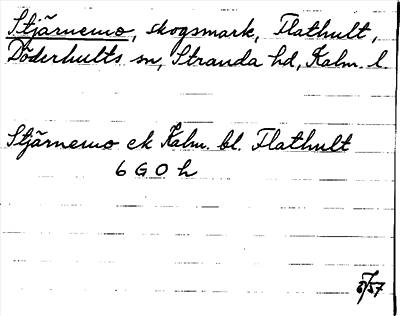 Stjärnemo, skogsmark, Flathult,
Döderhults sn, Stranda hd, Kalm. l
Stjärnemo ek Kalm. bl. Flathult
6 G O h